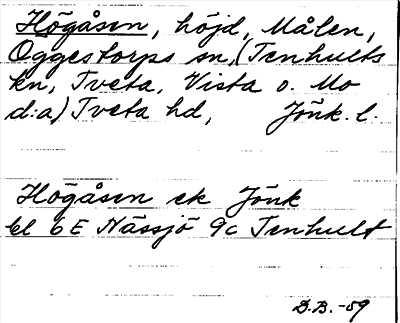 Högåsen, höjd, Målen,
Oggestorps sn, (Tenhults
kn, Tveta, Vista o. Mo
d:a) Tveta hd, Jönk. l.
Högåsen ek Jönk
bl 6E Nässjö 9c Tenhult
D.B.-59